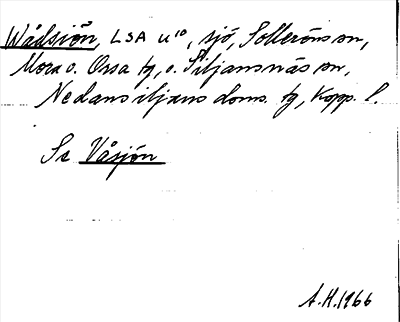 Wådsiön, LSA U¹⁰, sjö, Solleröns sn,
Mora o. Orsa tg, o. Siljansnäs sn,
Nedansiljans doms. tg, Kopp. l.
Se Våsjön
A.H. 1966